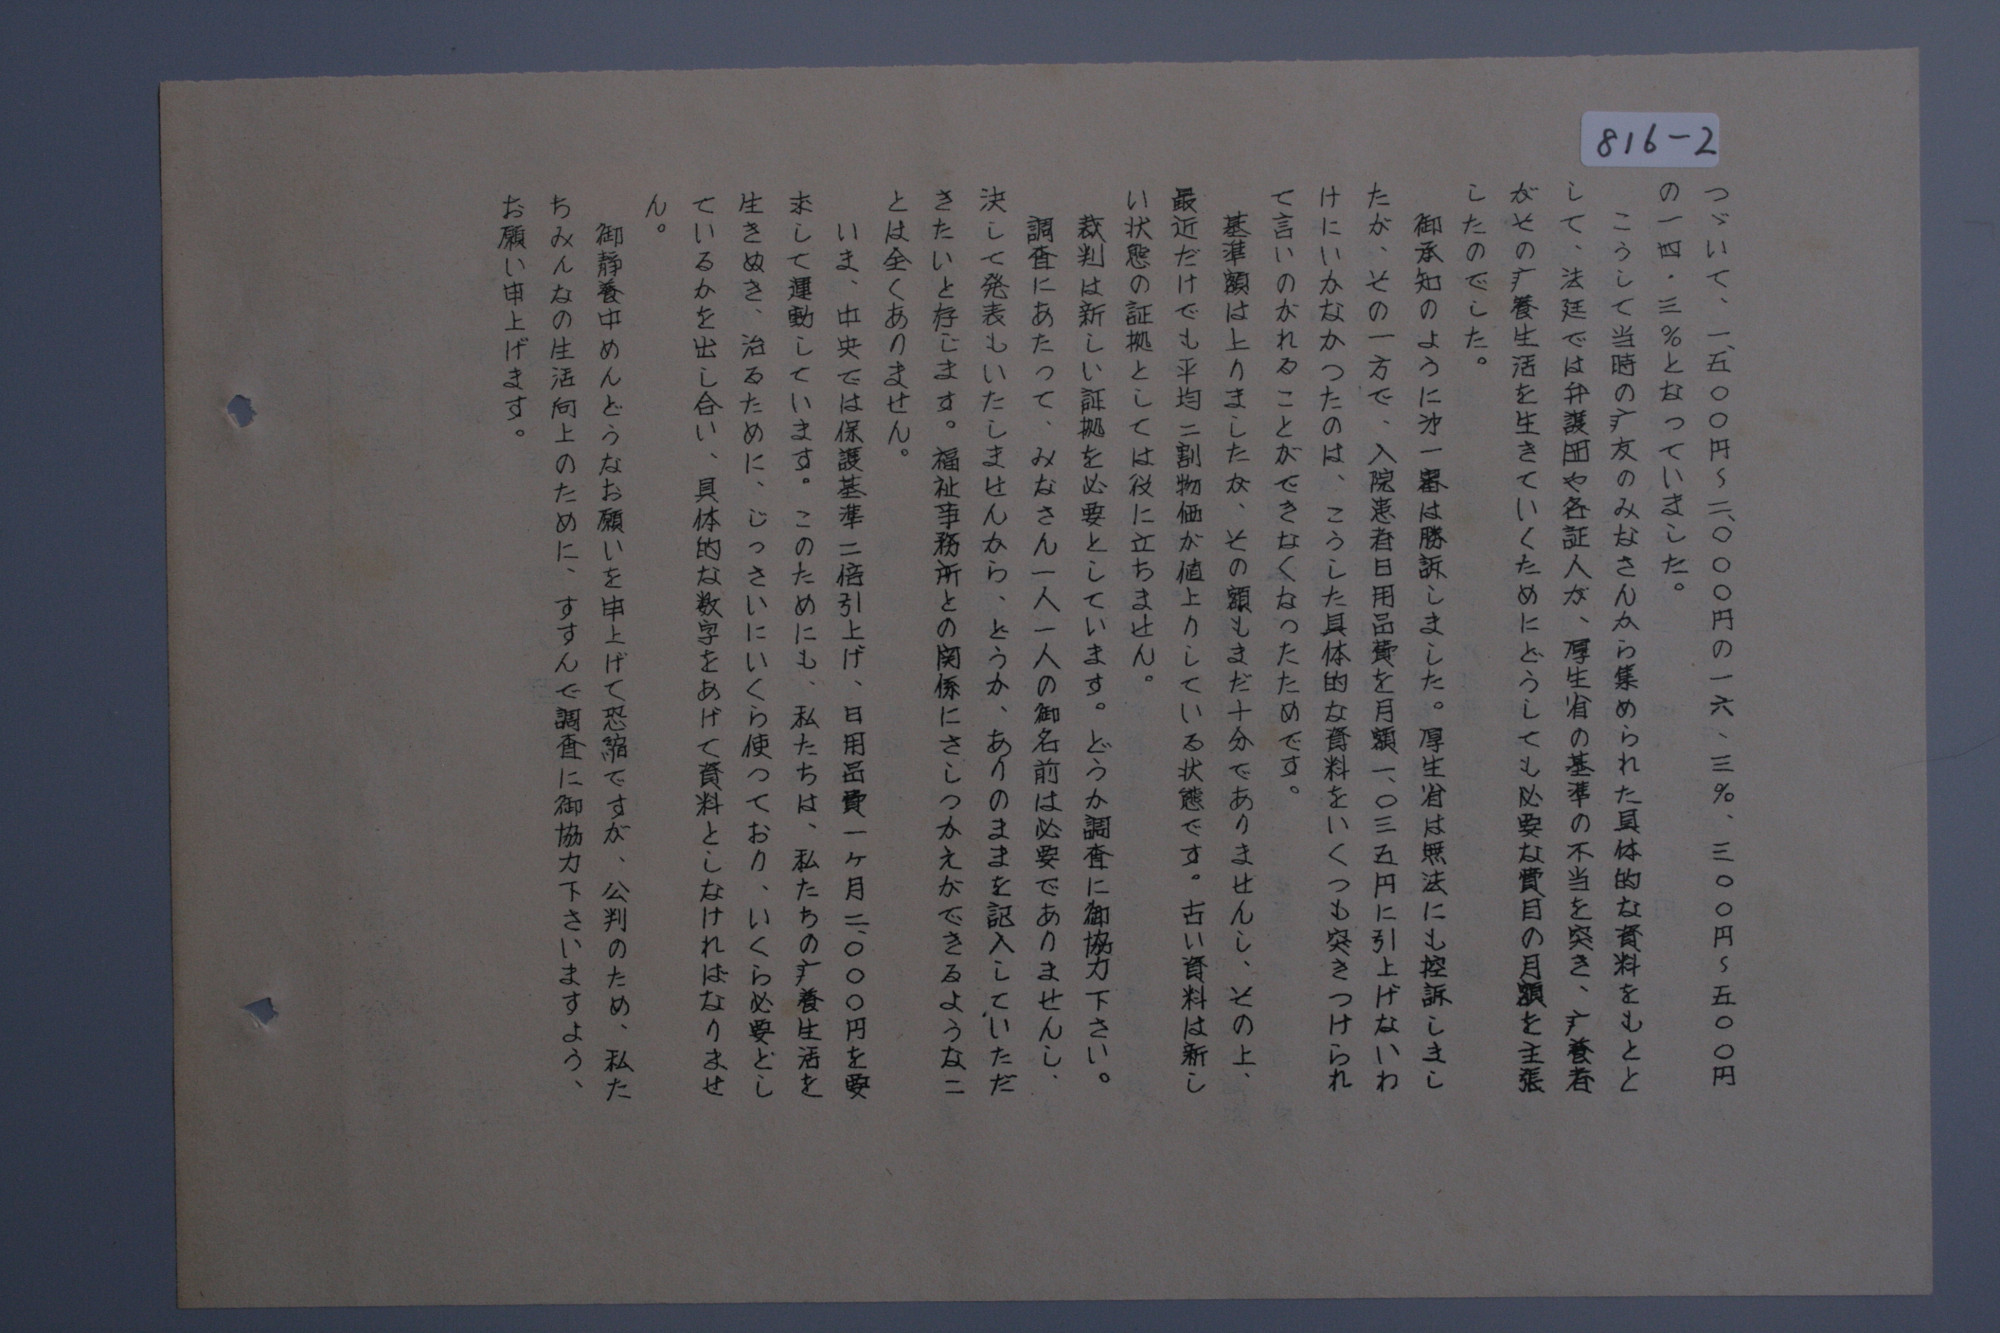 816-2
つゞいて、一、五〇〇円～二、〇〇〇円の一六、三％、三〇〇円～五〇〇円
の一四・三％となっていました。
こうして当時の疒友のみなさんから集められた具体的な資料をもとと
して、法廷では弁護団や各証人が、厚生省の基準の不当を突き、疒養者
がその疒養生活を生きていくためにどうしても必要な費目の月額を主張
したのでした。
御承知のように才一審は勝訴しました。厚生省は無法にも控訴しまし
たが、その一方で、入院患者日用品費を月額一、〇三五円に引上げないわ
けにいかなかつたのは、こうした具体的な資料をいくつも突きつけられ
て言いのがれることができなくなったためです。
基準額は上りましたが、その額もまだ十分でありませんし、その上、
最近だけでも平均二割物価が値上りしている状態です。古い資料は新し
い状態の証拠としては役に立ちません。
裁判は新しい証拠を必要としています。どうか調査に御協力下さい。
調査にあたって、みなさん一人一人の御名前は必要でありませんし、
決して発表もいたしませんから、どうか、ありのままを記入していただ
きたいと存じます。福祉事務所との関係にさしつかえができるようなこ
とは全くありません。
いま、中央では保護基準二倍引上げ、日用品費一ヶ月二、〇〇〇円を要
求して運動しています。このためにも、私たちは、私たちの疒養生活を
生きぬき、治るために、じっさいにいくら使つており、いくら必要とし
ているかを出し合い、具体的な数字をあげて資料としなければなりませ
ん。
御静養中めんどうなお願いを申上げて恐縮ですが、公判のため、私た
ちみんなの生活向上のために、すすんで調査に御協力下さいますよう、
お願い申上げます。